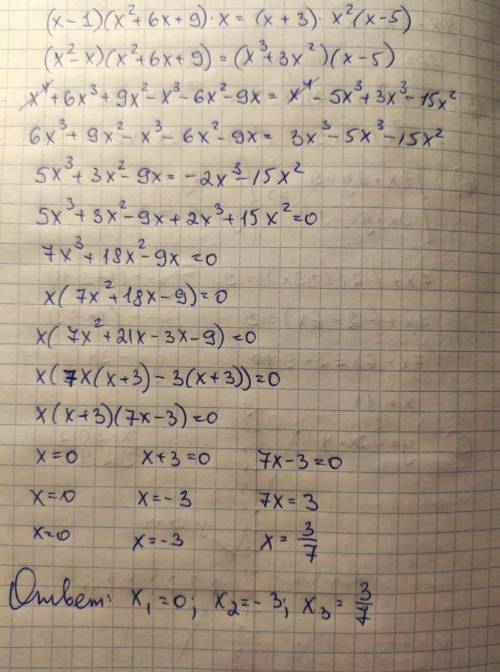 (x-1)(x²+6x+9)·x = (x+3)·x²(x-5)
(x²-x)(x²+6x+9) = (x³+3x²)(x-5)
x⁴+6x³+9x²-x³-6x²-9x = x⁴-5x³+3x³-15x²
6x³+9x²-x³-6x²-9x = 3x³-5x³-15x²
5x³+3x²-9x = -2x³-15x²
5x³+3x²-9x+2x³+15x²=0
7x³+18x²-9x=0
x(7x²+18x-9)=0
x(7x²+21x-3x-9)=0
x(7x(x+3)-3(x+3))=0
x(x+3)(7x-3)=0
x=0 x+3=0 7x-3=0
x=0 x=-3 7x=3
x=0 x=-3 x=3/7
Ответ: x₁=0; x₂=-3; x₃=3/7